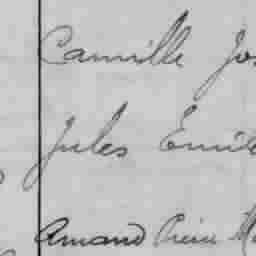 Camille Jos
Jules Emile
Amand Pierre